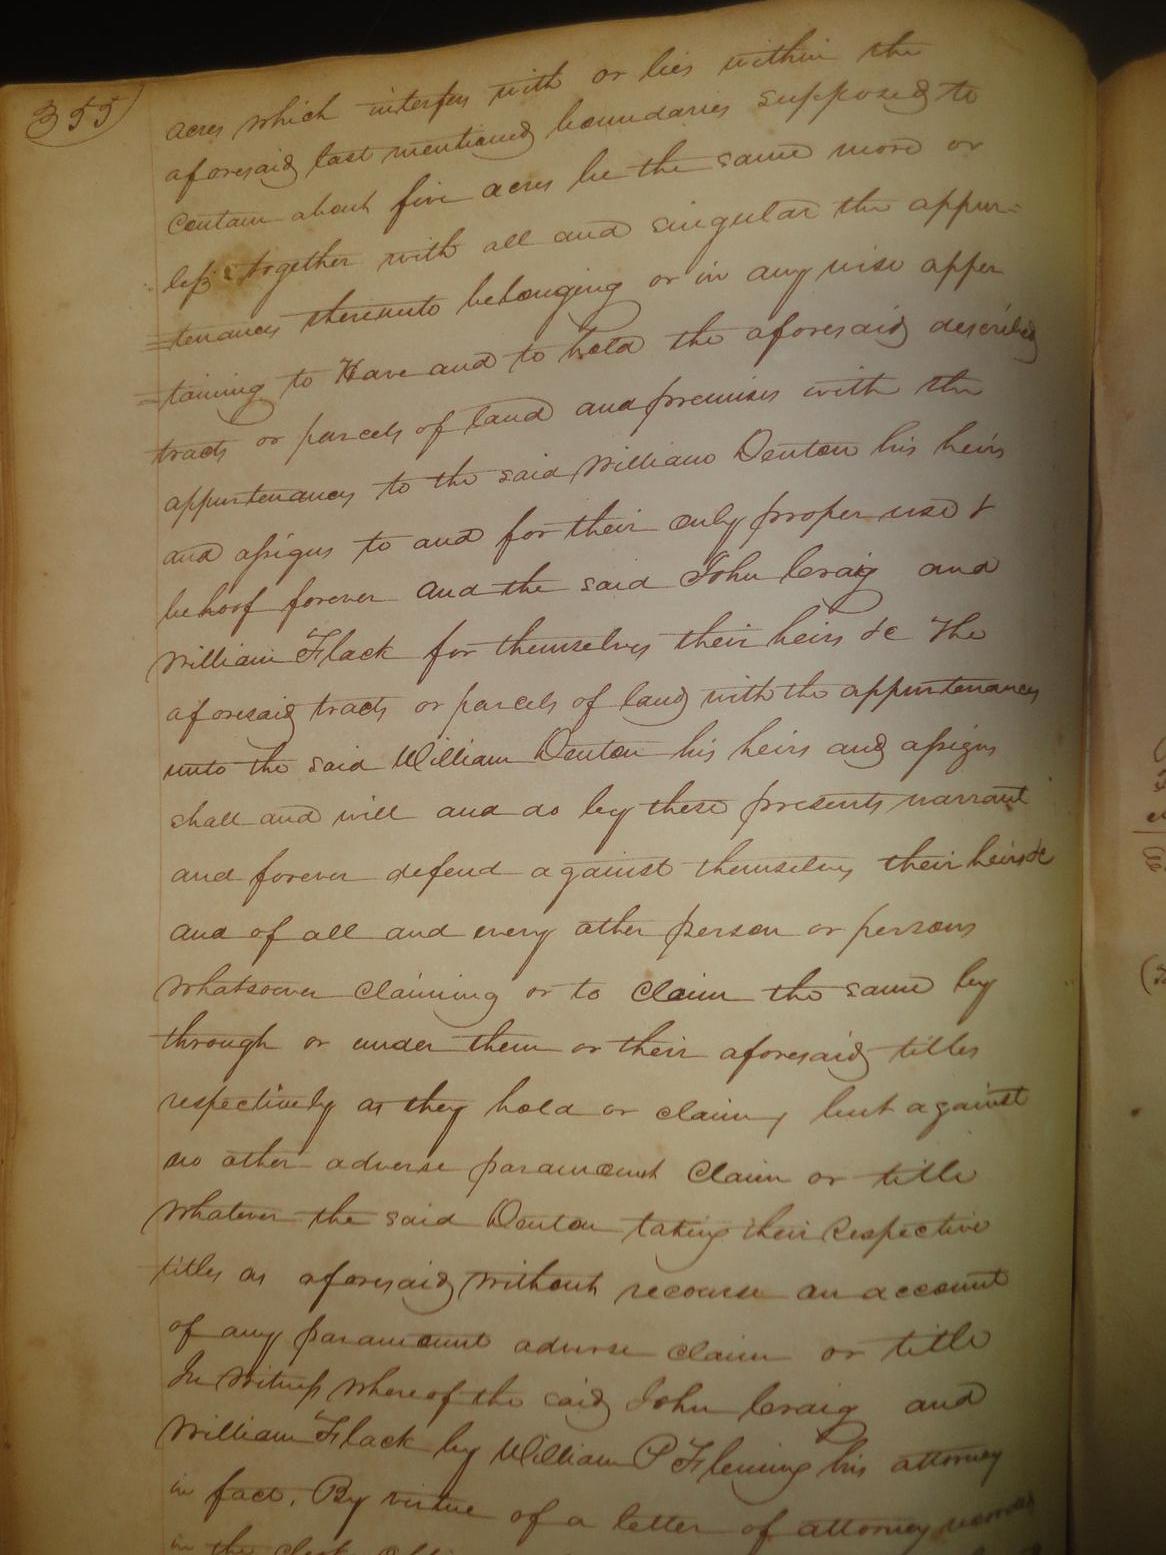 355
acres which interfers with or lies within the
aforesaid last mentioned boundaries supposed to
contain about five acres be the same more or
less together with all and singular the appur=
=tenances thereunto belonging or in any wise apper
=taining to Have and to hold the aforesaid described
tracts or parcels of land and premises with the
appurtenances to the said William Denton his heirs
and assigns to and for their only proper use &
behoof forever and the said John Craig and
William Flack for themselves their heirs &c The
aforesaid tracts or parcels of land with the appurtenances
unto the said William Denton his heirs and assigns
shall and will and do by these presents warrant
and forever defend against themselves their heirs &c
and of all and every other person or persons
whatsoever claiming or to claim the same by
through or under them or their aforesaid titles
respectively as they hold or claim, but against
no other adverse paramount claim or title
whatever the said Denton taking their respective
titles as aforesaid without recourse on account
of any paramount adverse claim or title
In Witness whereof the said John Craig and
William Flack by William P Fleming his attorney
in fact. By virtue of a letter of attorney
in the